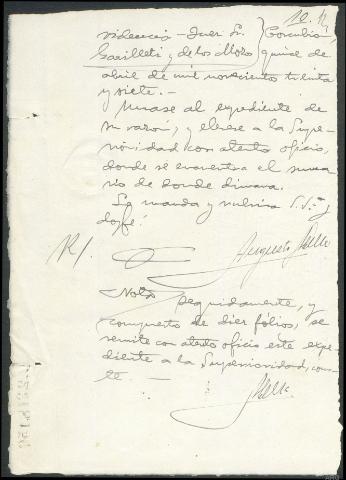 10.
videncia - Juez Sr. } Corcubión
Carilleti y de los Mozo } quince de
abril de mil novecientos treinta
y siete. -
Unase al expediente de
su razón, y elevese a la Supe-
rioridad con atento oficio,
donde se encuentra el suma-
rio de donde dimana.
Lo manda y rubrica S.Sª y
doyfé.
R/.
Augusto
Nota Seguidamente, y
compuesto de diez folios, se
remite con atento oficio este expe-
diente a la Superioridad, cons-
te. -